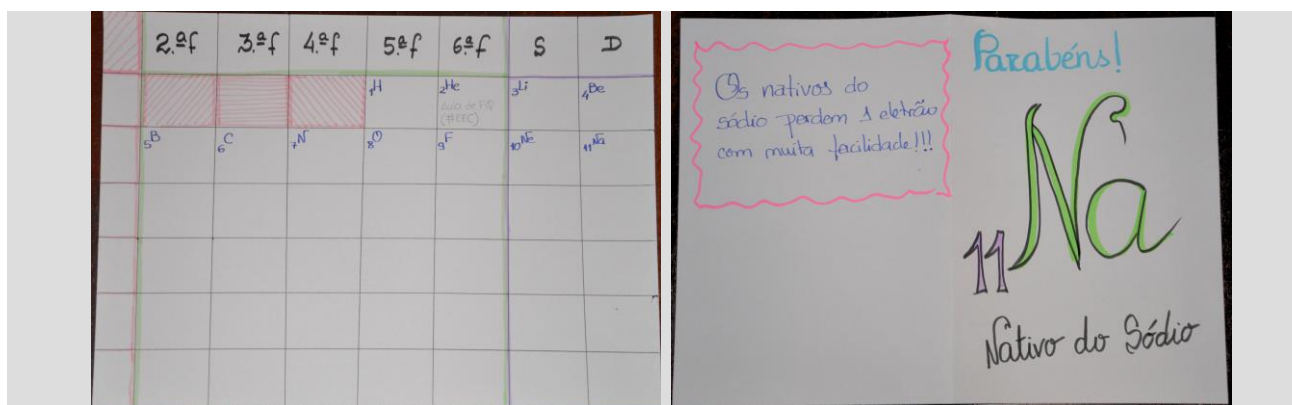 2.ªf 3.ªf 4.ªf 5.ªf 6.ªf S D
1H 2He 3Li 4Be
Aula de FQ
(#EEC)
5B 6C 7N 8O 9F 10Ne 11Na
Os nativos do
sódio perdem 1 eletrão
com muita facilidade!!!
Parabéns!
11Na
Nativo do Sódio